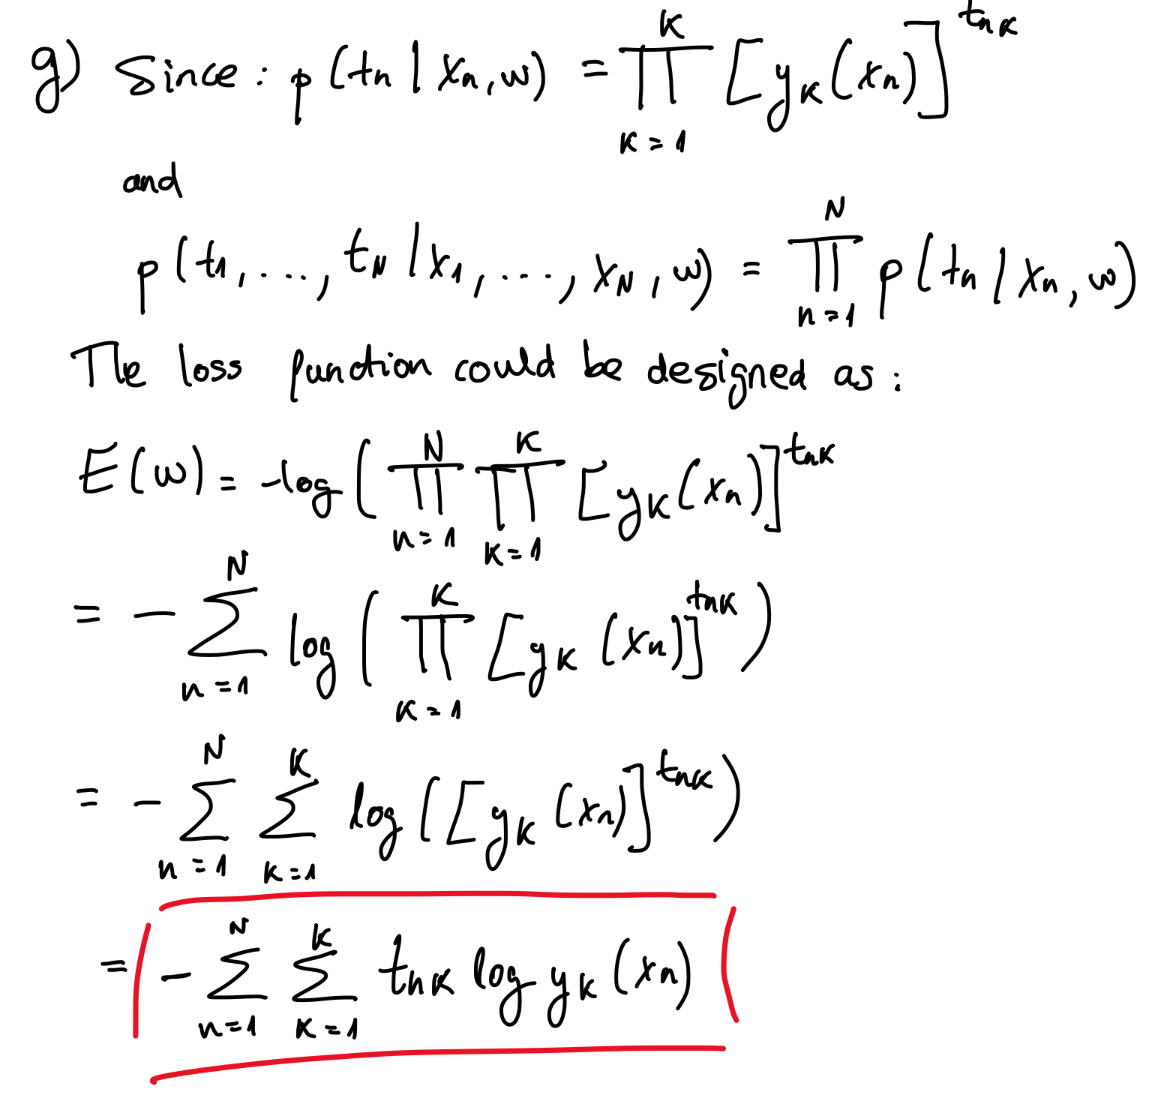 g) Since: p(tn | xn, w) = ∏_{k=1}^{K} [yk(xn)]^{tnk}
and
p(t1, ..., tN | x1, ..., xN, w) = ∏_{n=1}^{N} p(tn | xn, w)
The loss function could be designed as:
E(w) = -log( ∏_{n=1}^{N} ∏_{k=1}^{K} [yk(xn)]^{tnk}
= - ∑_{n=1}^{N} log( ∏_{k=1}^{K} [yk(xn)]^{tnk} )
= - ∑_{n=1}^{N} ∑_{k=1}^{K} log([yk(xn)]^{tnk})
= - ∑_{n=1}^{N} ∑_{k=1}^{K} tnk log yk(xn)